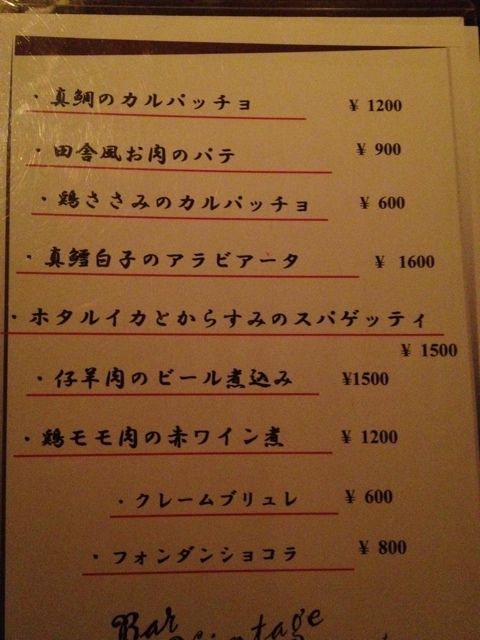 ・真鯛のカルパッチョ ¥ 1200
・田舎風お肉のパテ ¥ 900
・鶏ささみのカルパッチョ ¥ 600
・真鱈白子のアラビアータ ¥ 1600
・ホタルイカとからすみのスパゲッティ
¥ 1500
・仔羊肉のビール煮込み ¥1500
・鶏モモ肉の赤ワイン煮 ¥ 1200
・クレームブリュレ ¥ 600
・フォンダンショコラ ¥ 800
Bar